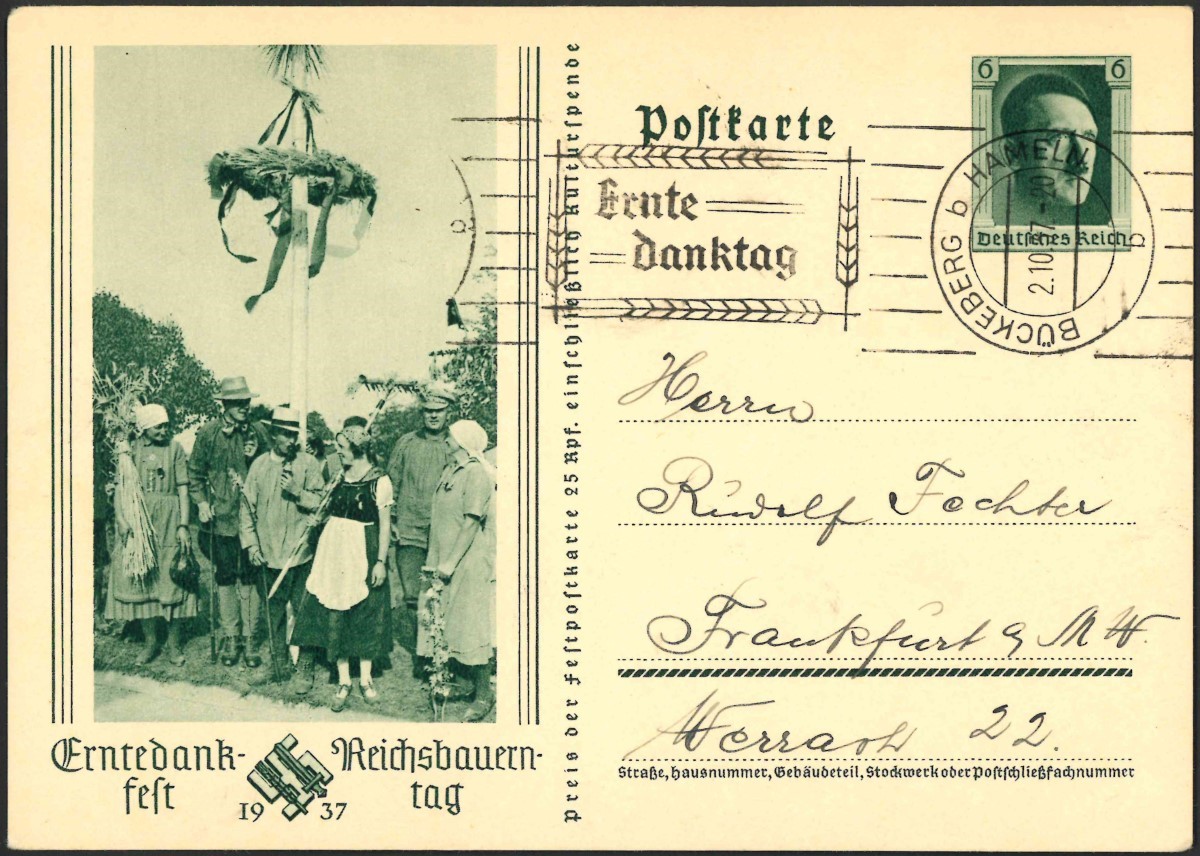 Erntedank-
fest
1937
Reichsbauern-
tag
Preis der Festpostkarte 25 Rpf. einschließlich Kulturspende
Postkarte
Ernte
Danktag
6 6
Deutsches Reich
BÜCKEBERG b HAMELN
2.10.37.-20
b
b
Herrn
Rudolf Fechter
Frankfurt a M W.
22.
Straße, Hausnummer, Gebäudeteil, Stockwerk oder Postschließfachnummer